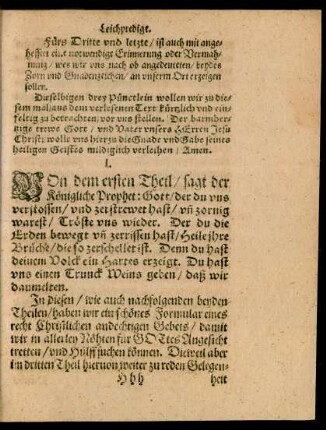 Leichpredigt.
Fürs Dritte vnd letzte/ ist auch mit ange-
hefftet eine notwendige Erinnerung oder Vermah-
nung/ wes wir vns nach ob angedeuteten/ beydes
Zorn vnd Gnadenzeichen/ an vnserm Ort erzeigen
sollen.
Dieselbigen drey Pünctlein wollen wir zu die-
sem mal aus dem verlesenen Text kürtzlich vnd ein-
feltig zu betrachten/ vor vns stellen. Der barmher-
tzige trewe Gott/ vnd Vater vnsers HErren Jesu
Christi/ wolle vns hierzu die Gnade vnd Gabe seines
heiligen Geistes mildiglich verleihen/ Amen.
I.
VOn dem ersten Theil/ sagt der
Königliche Prophet: Gott/ der du vns
verstossen/ vnd zerstrewet hast/ vñ zornig
warest/ Tröste vns wieder. Der du die
Erden bewegt vñ zerrissen hast/ Heile jhre
Brüche/ die so zerschellet ist. Denn du hast
deinem Volck ein Hartes erzeigt. Du hast
vns einen Trunck Weins geben/ daß wir
daumelten.
In diesen/ wie auch nachfolgenden beyden
Theilen/ haben wir ein schönes Formular eines
recht Christlichen andechtigen Gebets/ damit
wir in allerley Nöhten für GOttes Angesicht
tretten/ vnd Hülff suchen können. Dieweil aber
im dritten Theil hieruon weiter zu reden Gelegen-
Hhh heit